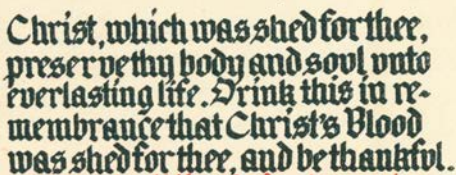 Christ, which was shed for thee,
preserve thy body and soul unto
everlasting life. Drink this in re-
membrance that Christ's Blood
was shed for thee, and be thankful.